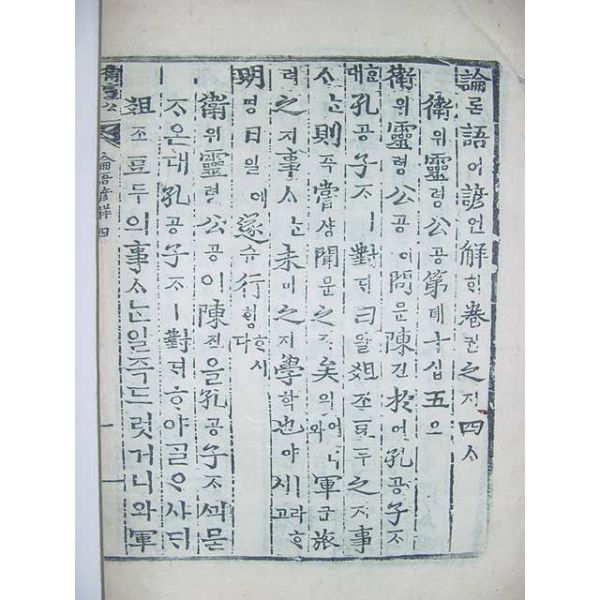 論론語어諺언解ᄒᆡ卷권之지四ᄉᆞ
衛위靈령公공第뎨十십五오
衛위靈령公공이問문陳진於어孔공子ᄌᆞ
ᄒᆞᆫ대孔공子ᄌᆞㅣ對ᄃᆡ曰왈俎조豆두之지事
ᄉᆞᄂᆞᆫ則즉嘗샹聞문之지矣의어니와軍군旅
려之지事ᄉᆞᄂᆞᆫ未미之지學학也야ㅣ라ᄒᆞ시고
明명日일에遂슈行ᄒᆡᆼᄒᆞ시다
衛위靈령公공이陳진을孔공子ᄌᆞᄭᅴ묻
ᄌᆞ온대孔공子ᄌᆞㅣ對ᄃᆡᄒᆞ야ᄀᆞᆯᄋᆞ샤ᄃᆡ
俎조豆두의事ᄉᆞᄂᆞᆫ일즉드럿거니와軍
衛靈公
論語諺解 四